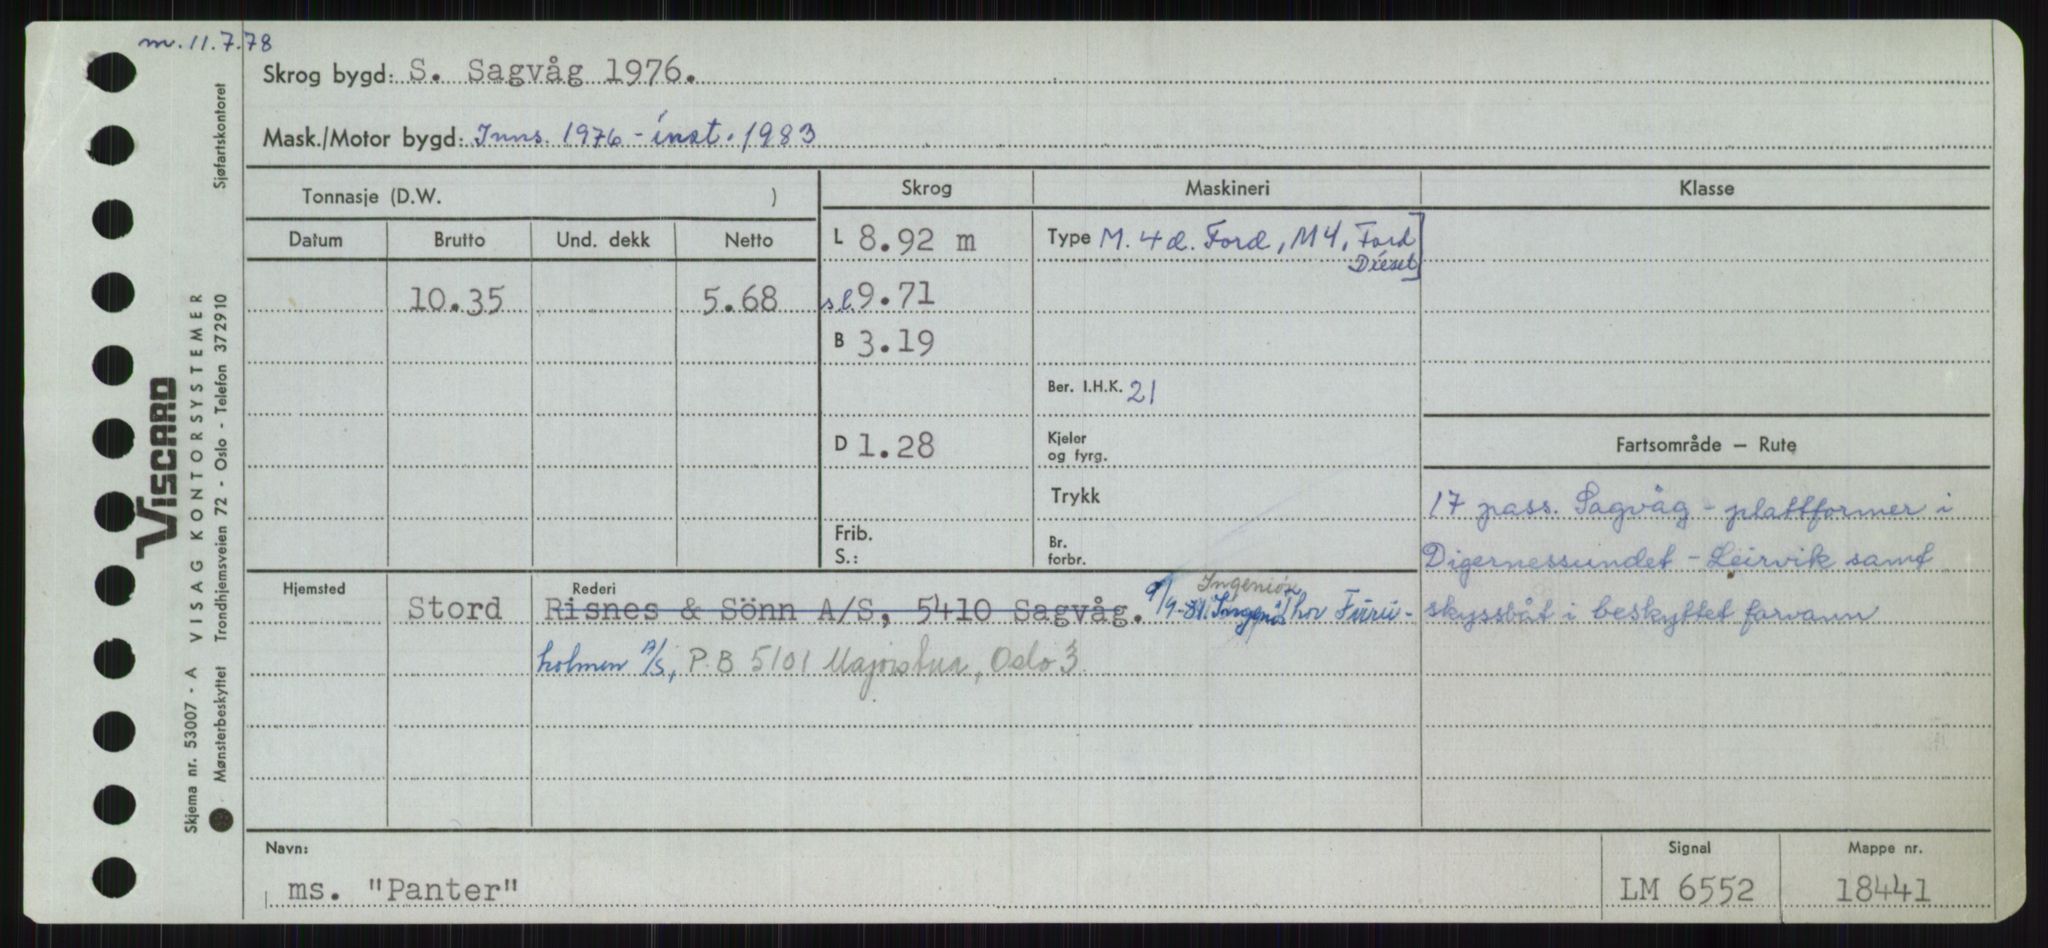 m. 11.7.78
Skrog bygd: S. Sagvåg 1976.
Mask./Motor bygd: Inns. 1976 - inst. 1983
Tonnasje (D.W. )
Skrog
Maskineri
Klasse
Datum Brutto Und. dekk Netto
L 8.92 m
Type M. 4 d. Ford, M4, Ford
Diesel]
10.35 5.68
s.l. 9.71
B 3.19
Ber. I.H.K. 21
D 1.28
Kjeler
og fyrg.
Trykk
Frib.
S.:
Br.
forbr.
Fartsområde — Rute
17 pass. Sagvåg - plattformer i
Digernessundet - Leirvik samt
skyssbåt i beskyttet farvann
Hjemsted
Rederi
Ingeniør
Stord Risnes & Sönn A/S, 5410 Sagvåg. 9/9-81. Ingeniør Thor Furu-
holmen A/S, P.B. 5101 Majorstua, Oslo 3.
Navn:
ms. "Panter"
Signal
LM 6552
Mappe nr.
18441
VISCARD
Skjema nr. 53007 - A VISAG KONTORSYSTEMER Sjøfartskontoret
Mønsterbeskyttet Trondhjemsveien 72 - Oslo - Telefon 372910